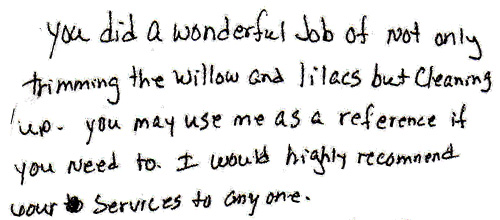 you did a wonderful Job of Not only
trimming the willow and lilacs but Cleaning
up. you may use me as a reference if
you Need to. I would highly recomnend
your services to anyone.